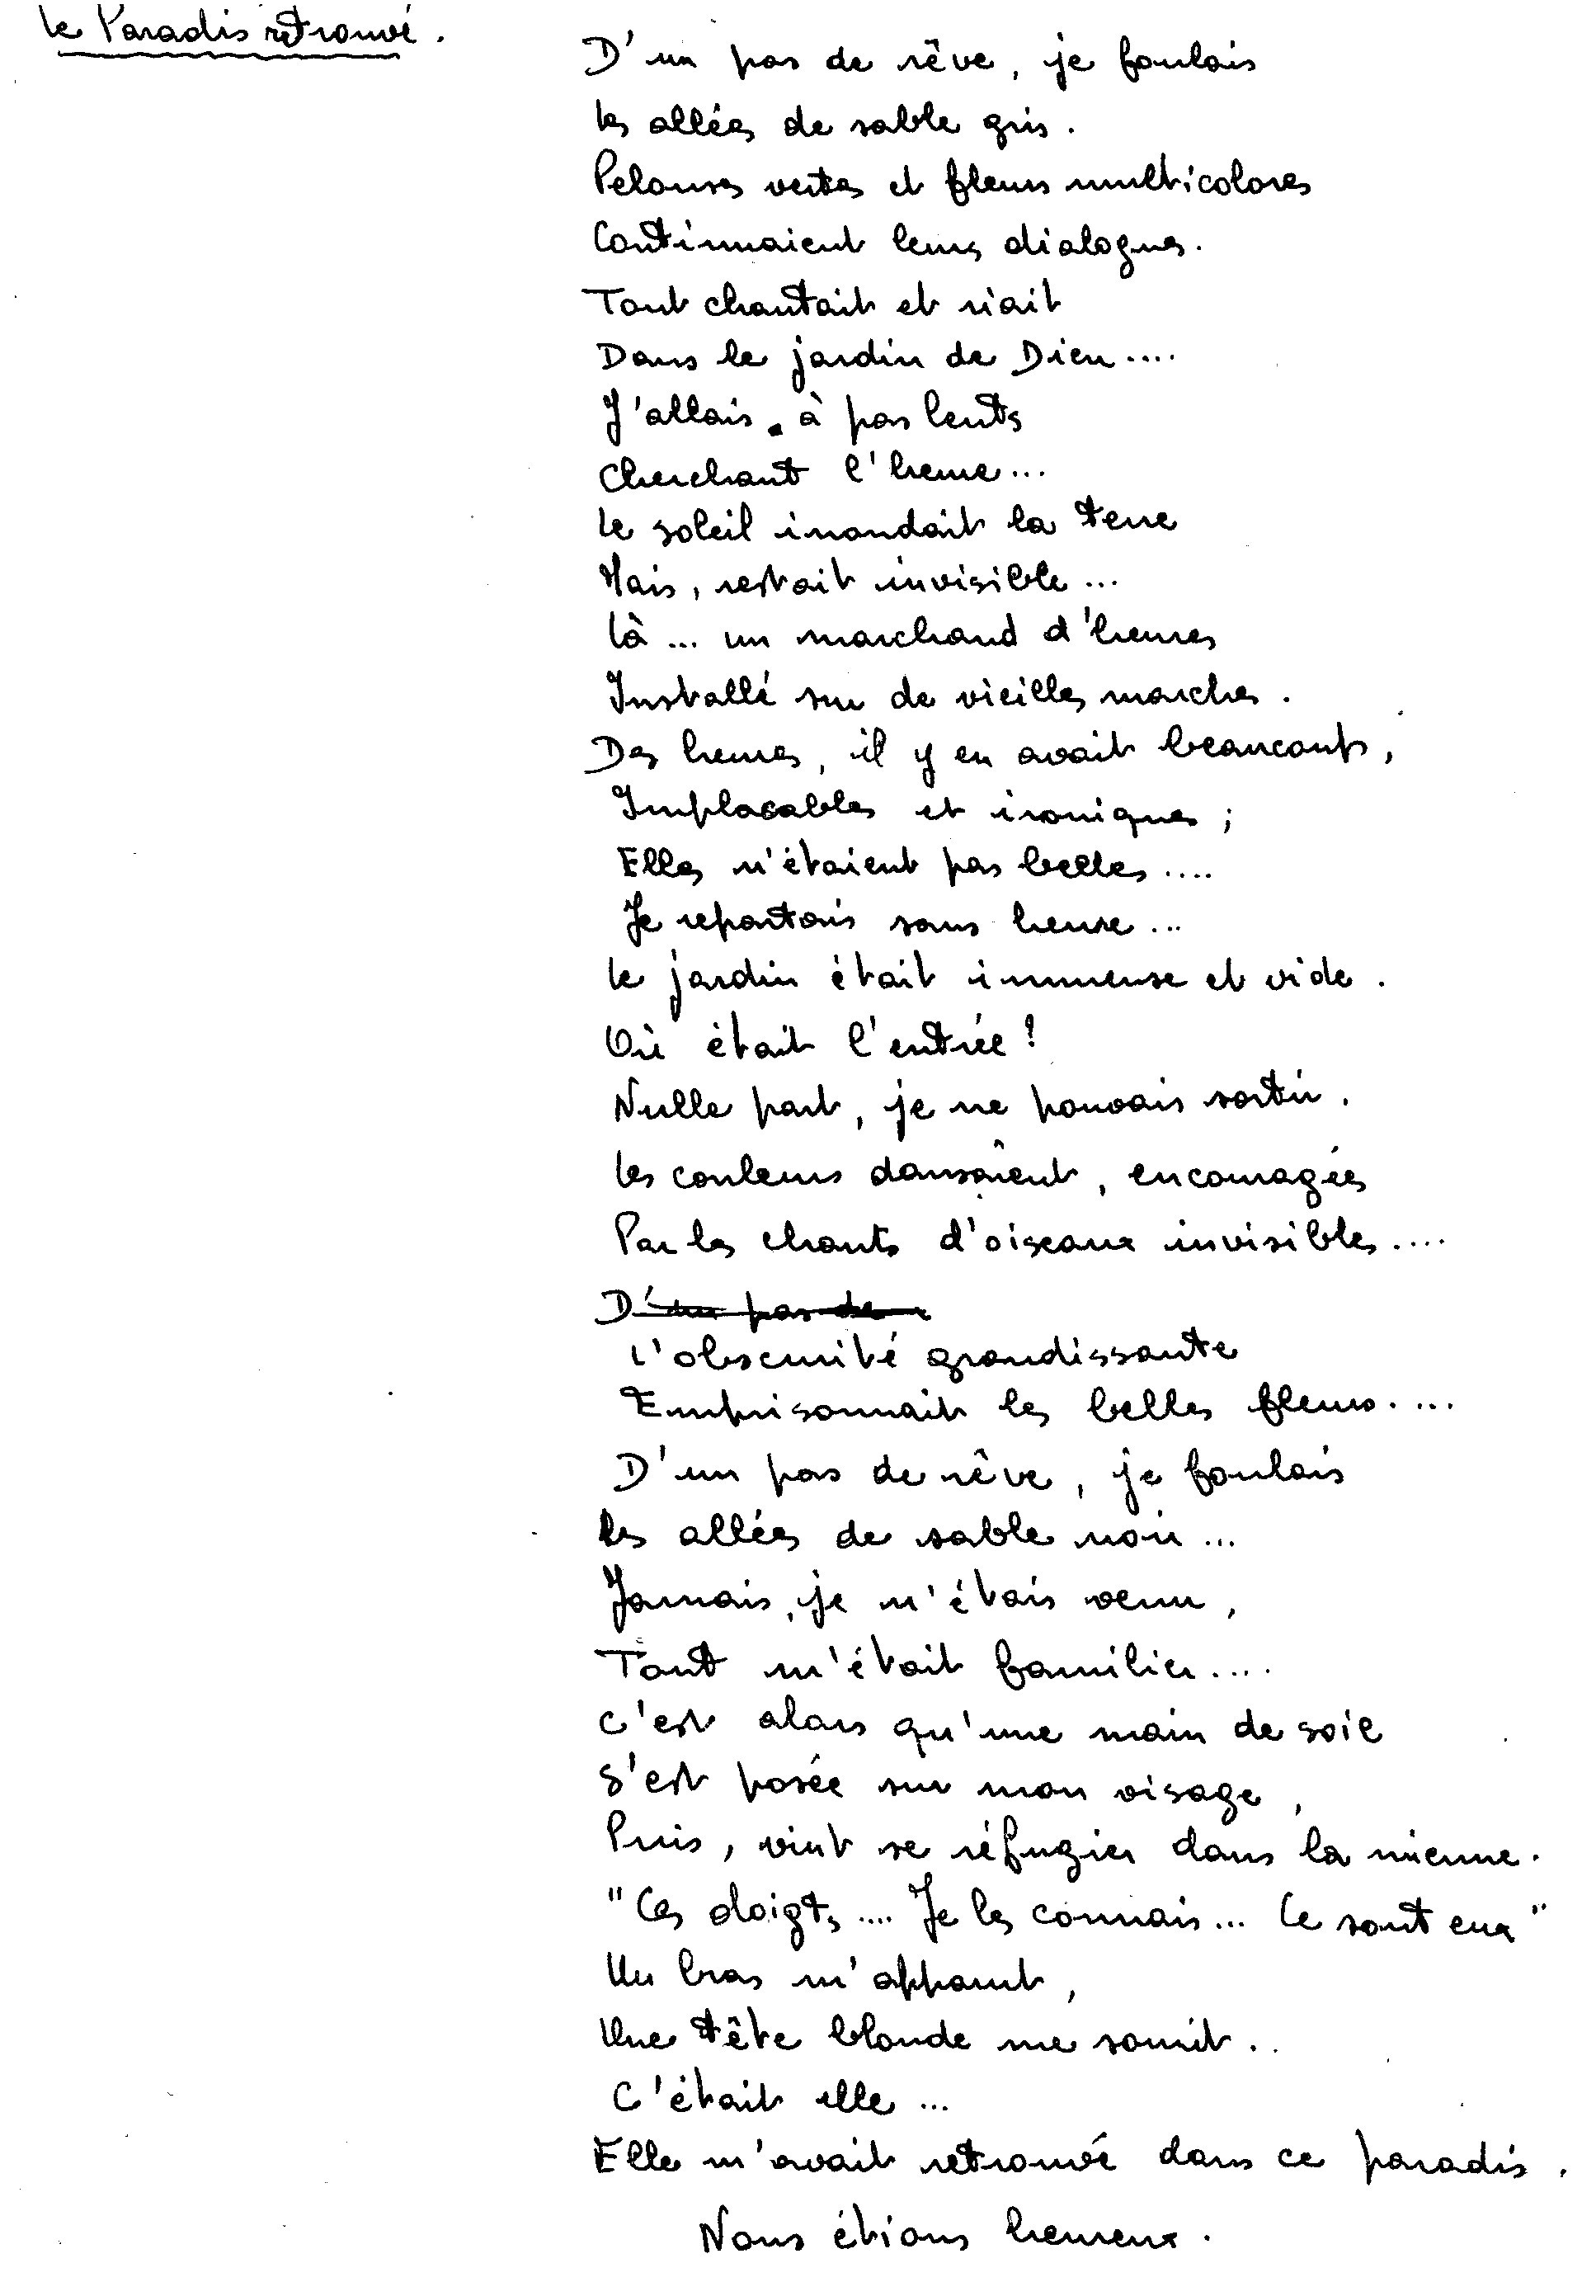 Le Paradis retrouvé.
D'un pas de rêve, je foulais
les allées de sable gris.
Pelouses vertes et fleurs multicolores
Continuaient leurs dialogues.
Tout chantait et riait
Dans le jardin de Dieu....
J'allais à pas lents
Cherchant l'heure...
Le soleil inondait la terre
Mais, restait invisible...
Là... un marchand d'heures
Installé sur de vieilles marches.
Des heures, il y en avait beaucoup,
Implacables et ironiques ;
Elles n'étaient pas belles....
Je repartais sans heure...
Le jardin était immense et vide.
Où était l'entrée ?
Nulle part, je ne pouvais sortir.
Les couleurs dansaient, encouragées
Par les chants d'oiseaux invisibles....
D'un pas de
L'obscurité grandissante
Emprisonnait les belles fleurs....
D'un pas de rêve, je foulais
les allées de sable noir...
Jamais, je n'étais venu,
Tout m'était familier....
C'est alors qu'une main de soie
S'est posée sur mon visage,
Puis, vint se réfugier dans la mienne.
"Ces doigts.... Je les connais... Ce sont eux"
Un bras m'apparut,
Une tête blonde me sourit..
C'était elle...
Elle m'avait retrouvé dans ce paradis.
Nous étions heureux.